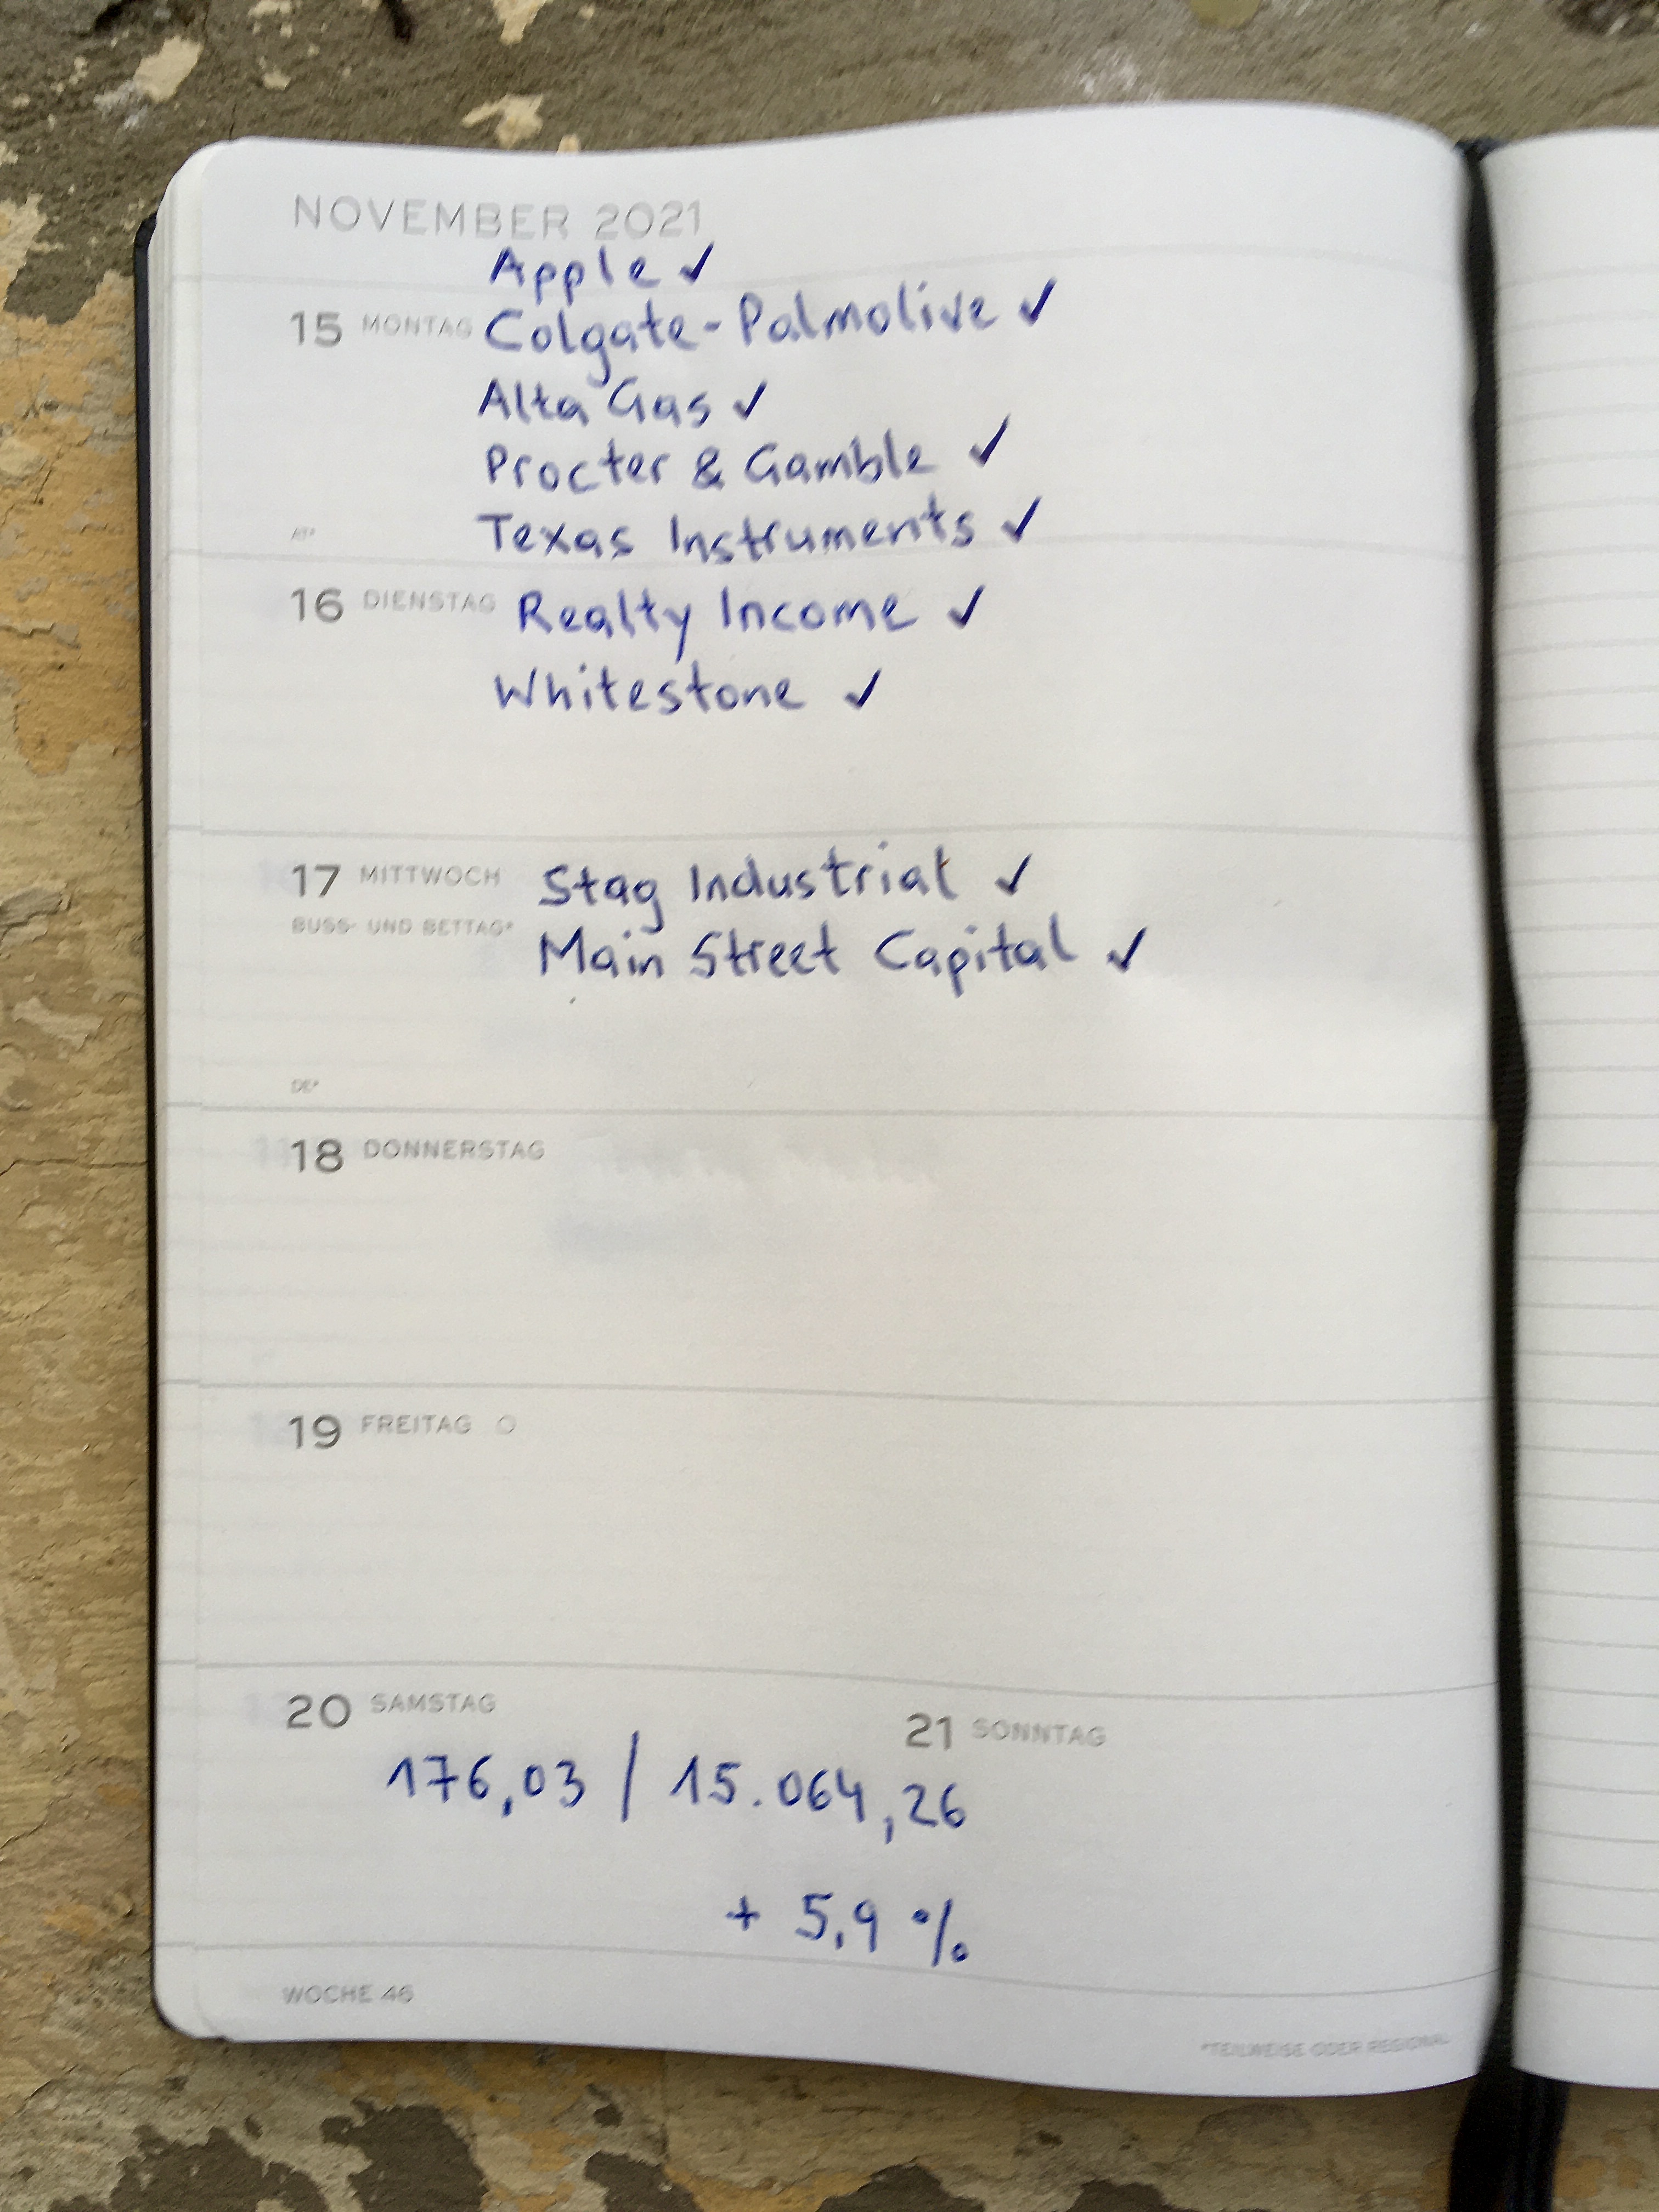 NOVEMBER 2021
Apple ✓
15 MONTAG Colgate-Palmolive ✓
Alta Gas ✓
Procter & Gamble ✓
AT*
Texas Instruments ✓
16 DIENSTAG Realty Income ✓
Whitestone ✓
17 MITTWOCH Stag Industrial ✓
BUSS- UND BETTAG*
Main Street Capital ✓
DE*
18 DONNERSTAG
19 FREITAG
20 SAMSTAG
21 SONNTAG
176,03 / 15.064,26
+ 5,9 %
WOCHE 46
*TEILWEISE ODER REGIONAL